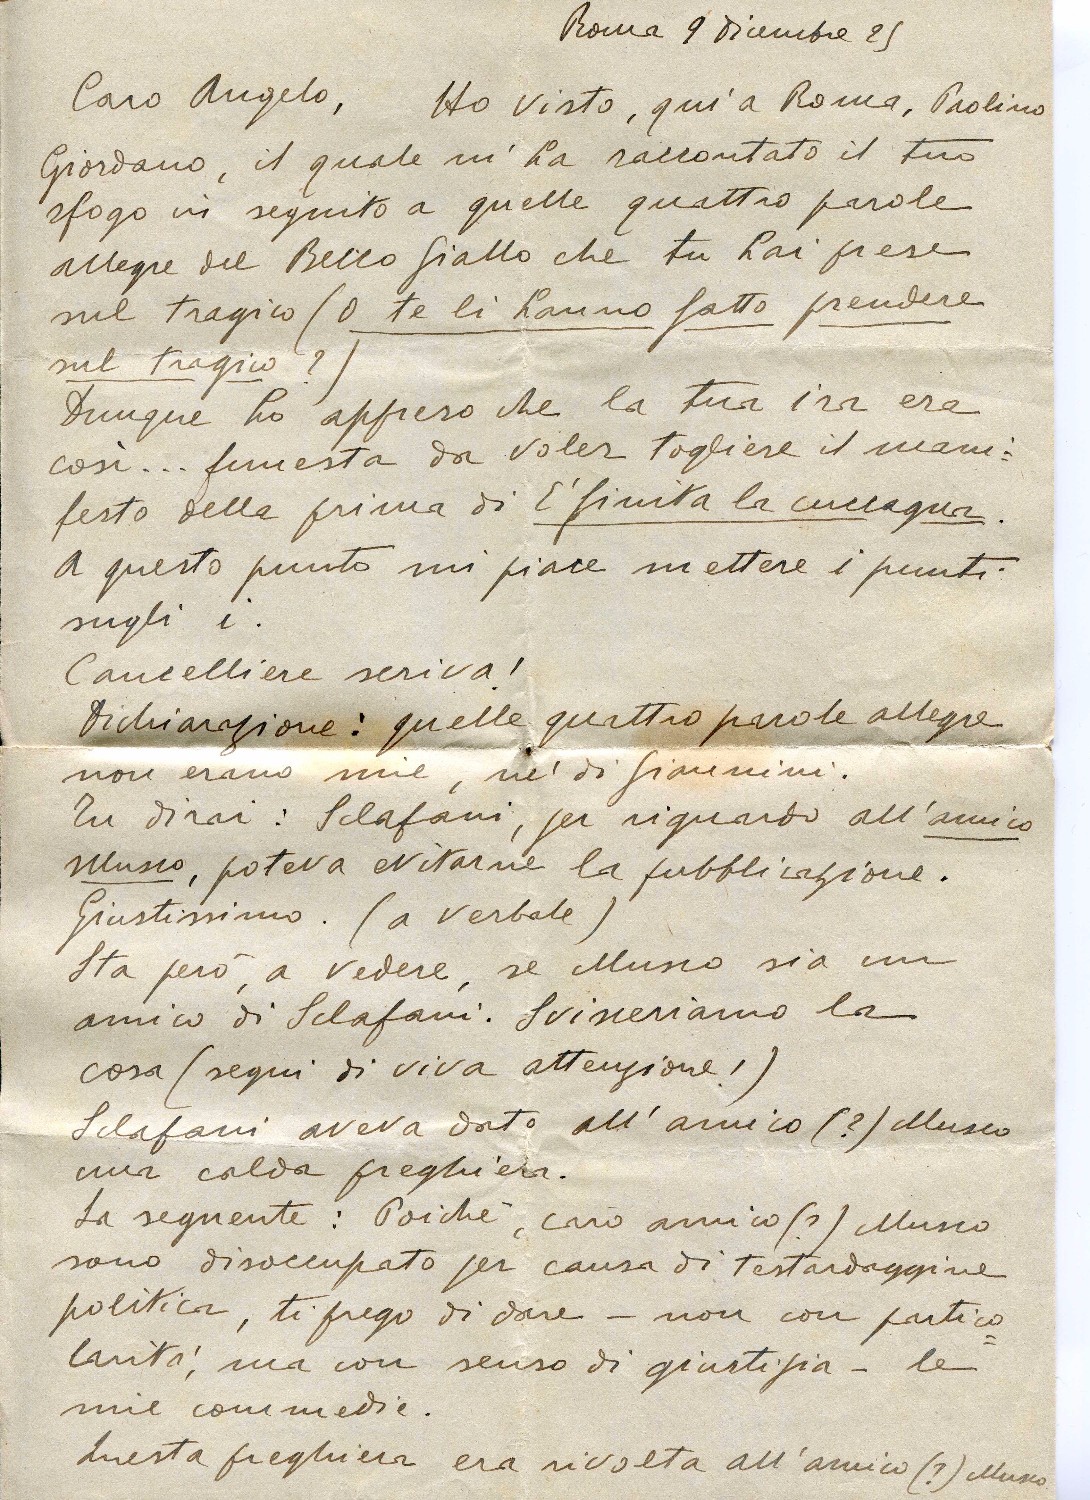 Roma 9 Dicembre 25
Caro Angelo, Ho visto, qui a Roma, Paolino
Giordano, il quale m'ha raccontato il tuo
sfogo in seguito a quelle quattro parole
allegre del Becco Giallo che tu hai prese
sul tragico (O te li hanno fatto prendere
sul tragico?)
Dunque ho appreso che la tua ira era
così... funesta da voler togliere il mani=
festo della prima di E' finita la cuccagna.
A questo punto mi piace mettere i punti
sugli i.
Cancelliere scriva!
Dichiarazione: quelle quattro parole allegre
non erano mie, ne' di Giannini.
Tu dirai: Sclafani, per riguardo all'amico
Musco, poteva evitarne la pubblicazione.
Giustissimo. (a verbale)
Sta però, a vedere, se Musco sia un
amico di Sclafani. Svisceriamo la
cosa (segui di viva attenzione!)
Sclafani aveva dato all'amico (?) Musco
una calda preghiera.
La seguente: Poichè, caro amico (?) Musco
sono disoccupato per causa di testardaggine
politica, ti prego di dare - non con partico=
larità, ma con senso di giustizia - le
mie commedie.
Questa preghiera era rivolta all'amico (?) Musco